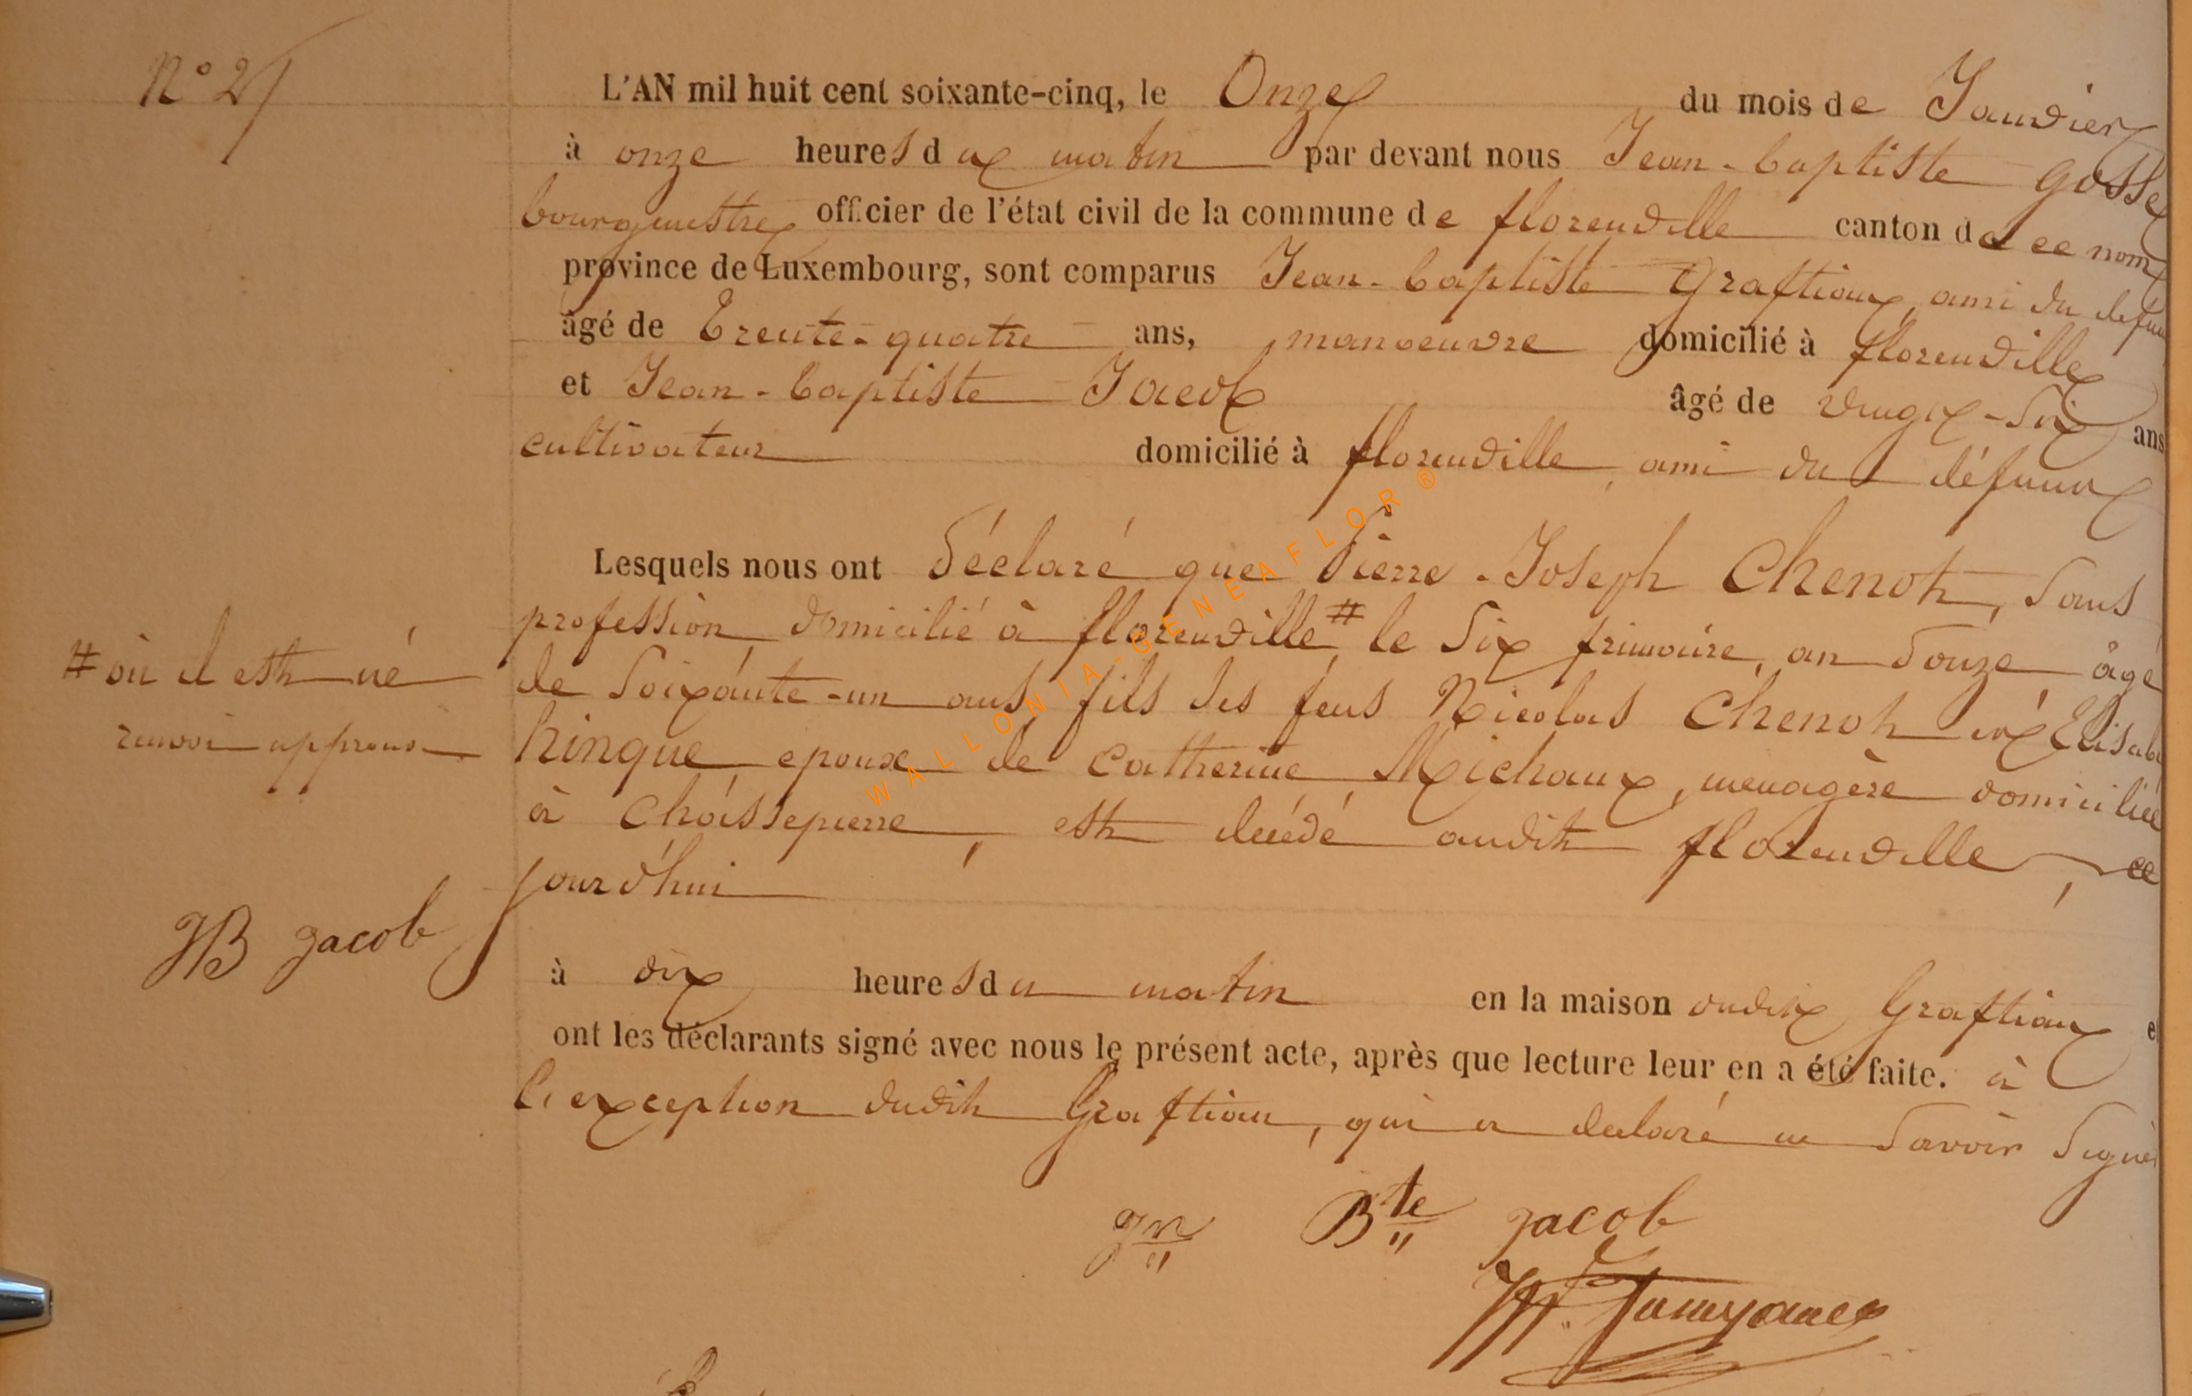 N° 2
L'AN mil huit cent soixante-cinq, le Onze du mois de Janvier
à onze heures du matin par devant nous Jean-baptiste Gosse
bourgmestre officier de l'état civil de la commune de florenville canton de ce nom
province de Luxembourg, sont comparus Jean-baptiste Graftiaux, ami du défunt
âgé de trente-quatre ans, manoeuvre domicilié à florenville
et Jean-baptiste Jacob âgé de vingt-six ans
cultivateur domicilié à florenville, ami du défunt
Lesquels nous ont déclaré que Pierre-Joseph Chenot, sans
profession, domicilié à florenville # le six frimaire, an douze âgé
# où il est né
de soixante-un ans, fils des feus Nicolas Chenot et Elisab
renvoi approuvé
hinque epoux de Catherine Michaux, menagère domiciliée
à Chassepierre, est décédé audit florenville, ce
jourd'hui
JB Jacob
à dix heures du matin en la maison dudit Graftiaux et
ont les déclarants signé avec nous le présent acte, après que lecture leur en a été faite. à
l'exception dudit Graftiau, qui a declaré ne savoir signer
Jn Bte Jacob
WALLONIA-GENEAFLOR ®